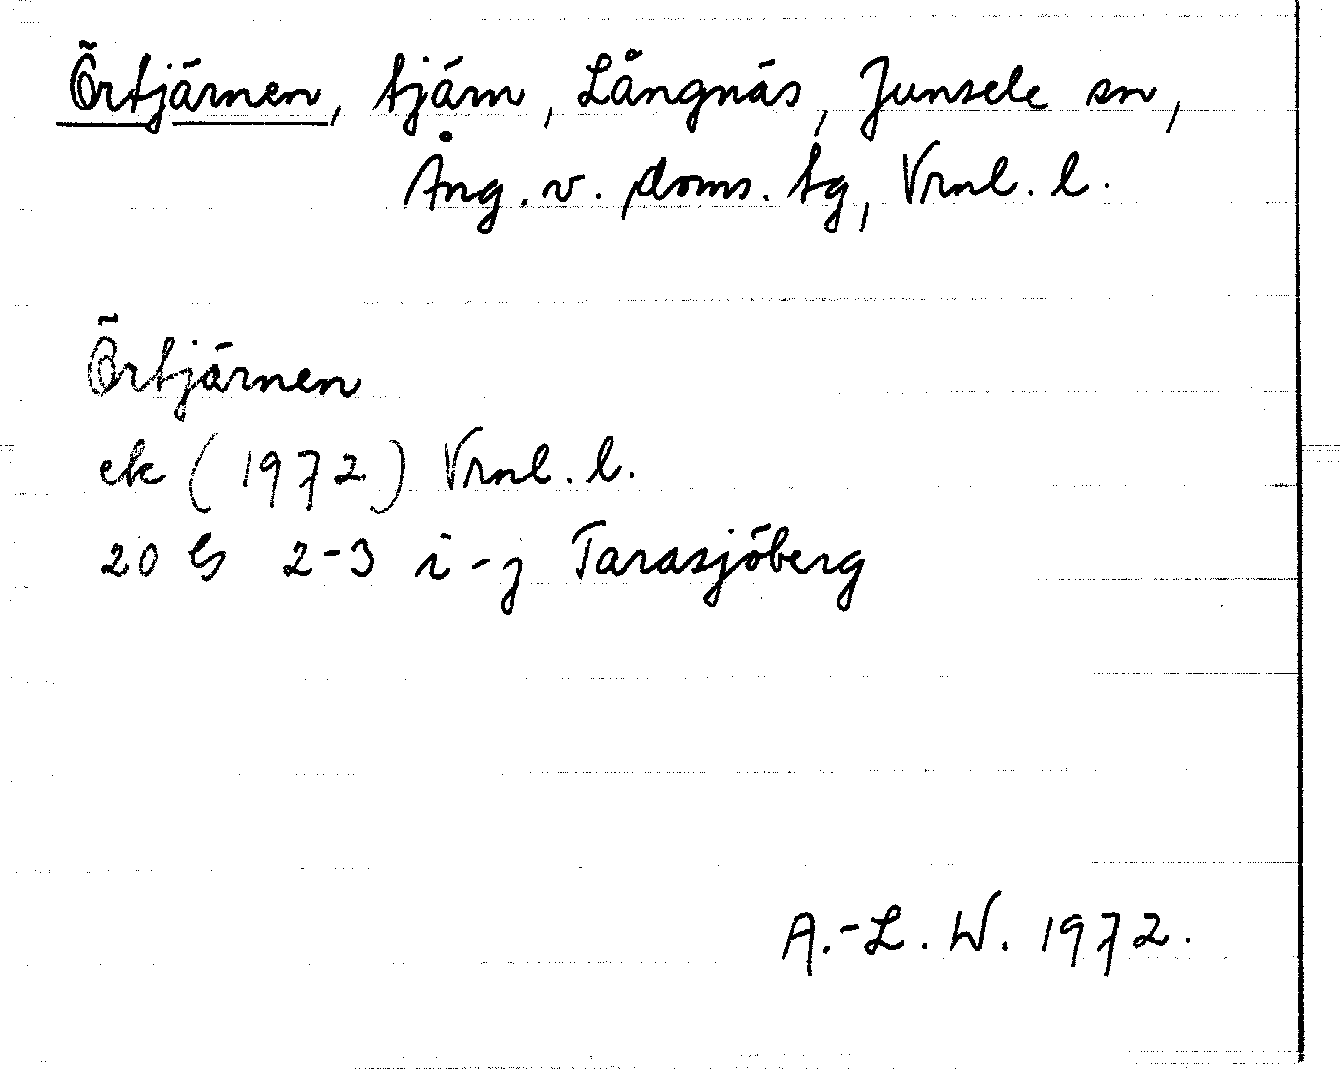 Örtjärnen, tjärn, Långnäs, Junsele sn,
Ång. v. doms. tg, Vrnl. l.
Örtjärnen
ek (1972) Vrnl. l.
20 G 2-3 i-j Tarasjöberg
A.-L. W. 1972.